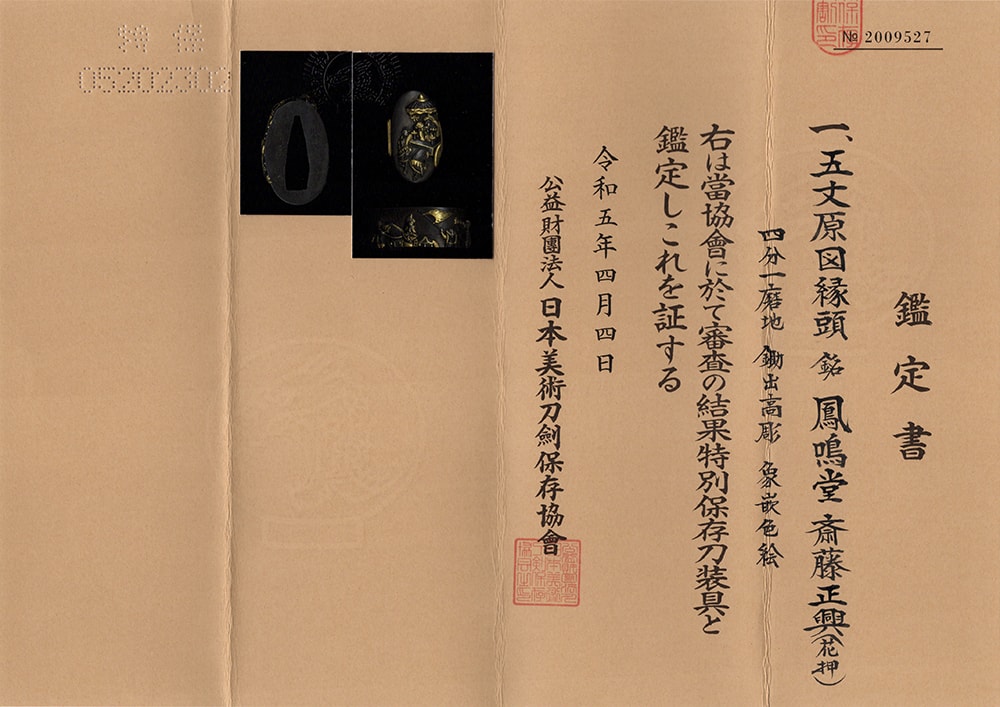 № 2009527
鑑定書
一、五丈原図縁頭 銘 鳳鳴堂 斎藤正興(花押)
四分一磨地 鋤出高彫 象嵌色絵
右は當協會に於て審査の結果特別保存刀装具と
鑑定しこれを証する
令和五年四月四日
公益財團法人 日本美術刀劍保存協會
05202302